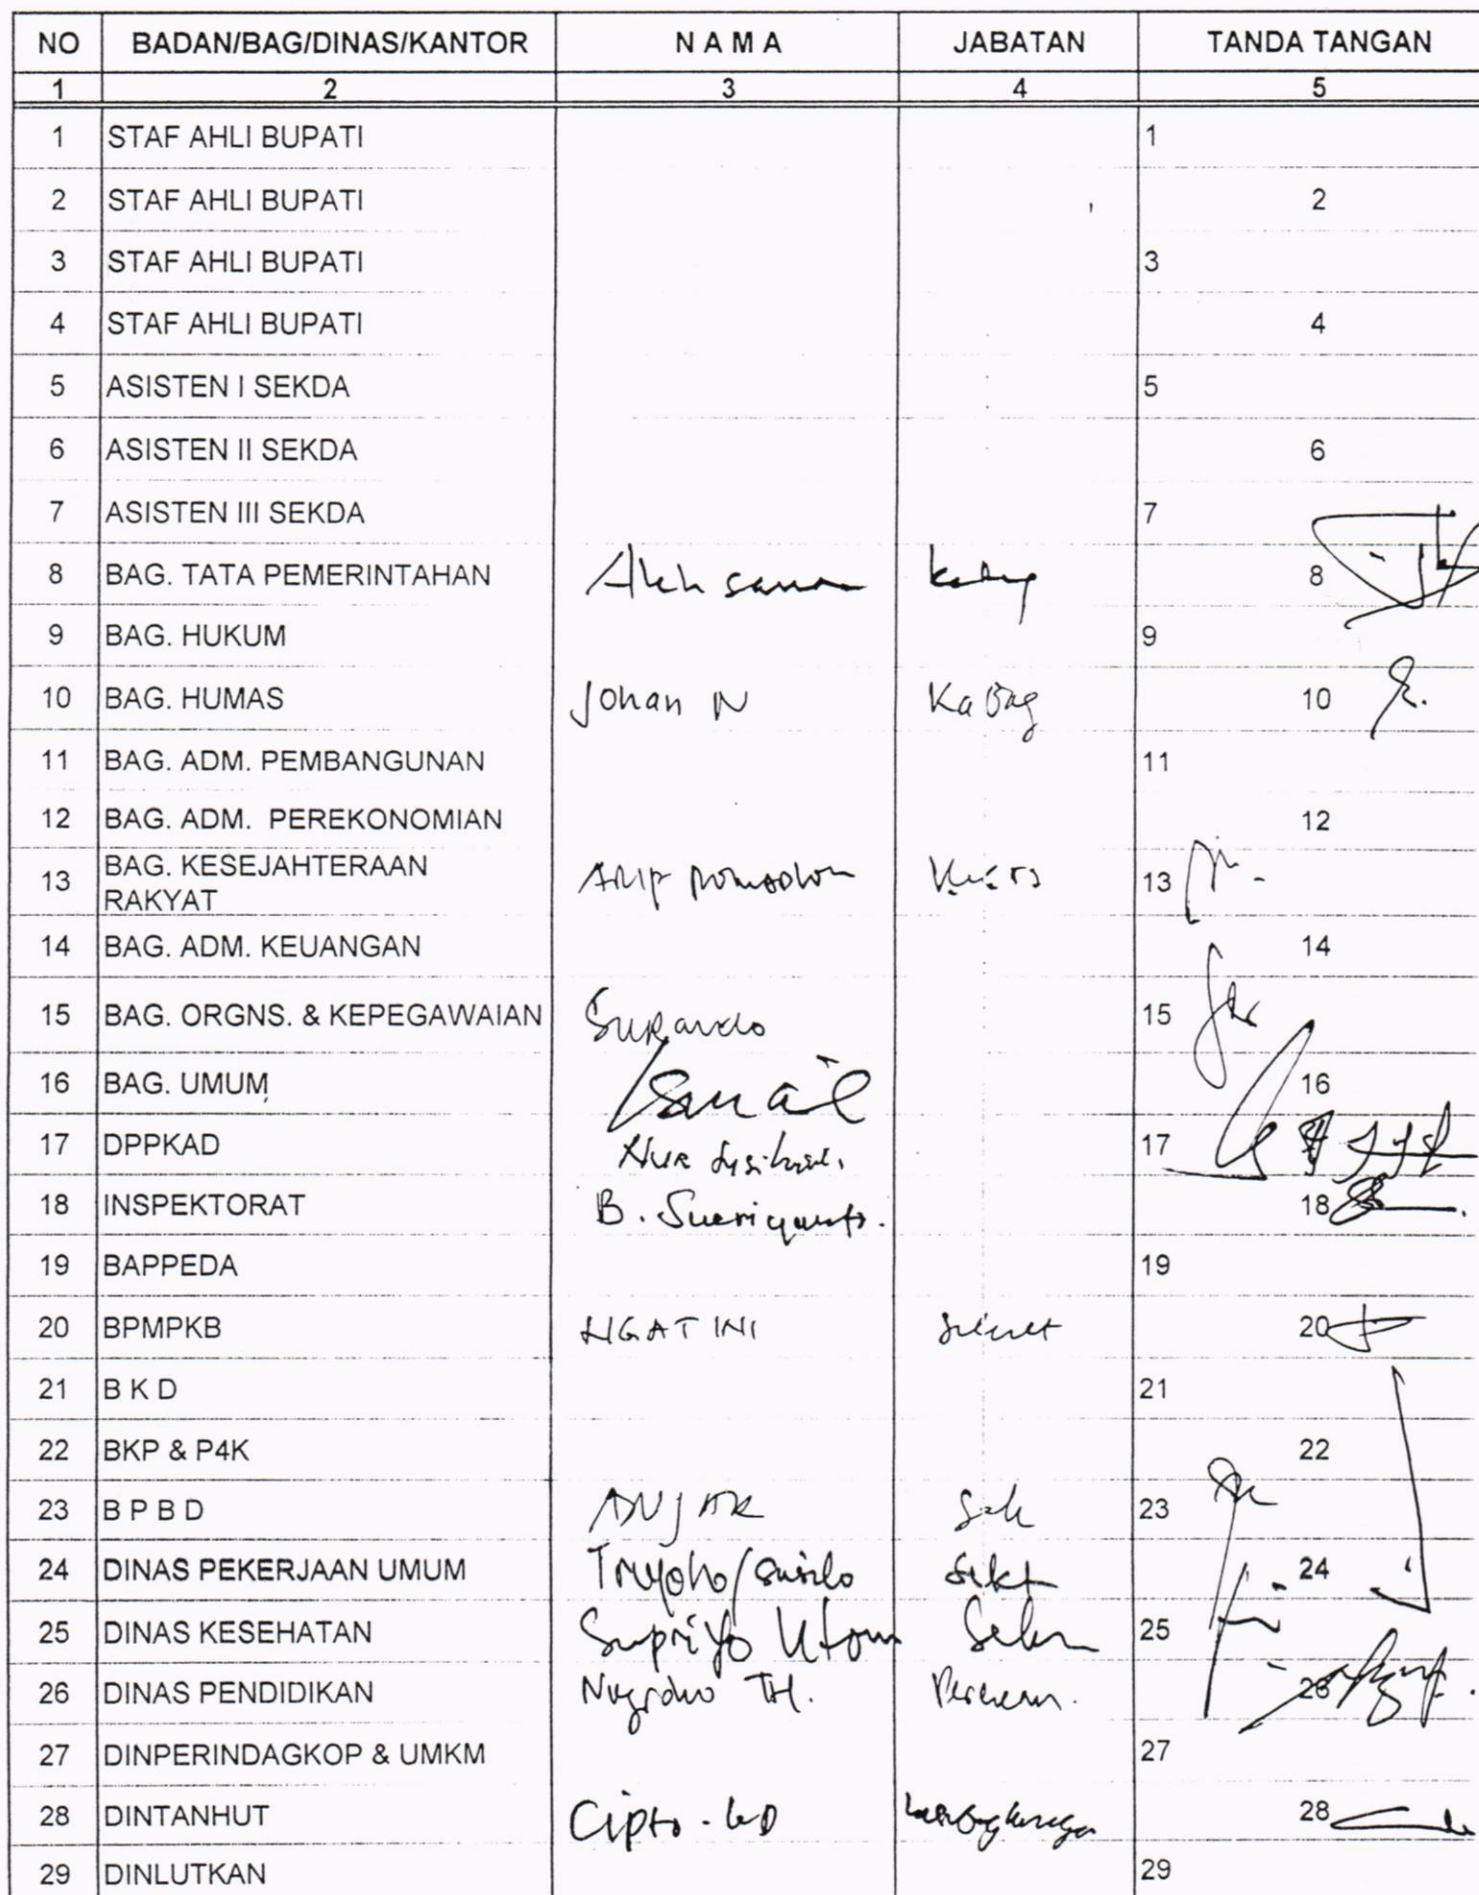 NO BADAN/BAG/DINAS/KANTOR N A M A JABATAN TANDA TANGAN
1 2 3 4 5
1 STAF AHLI BUPATI 1
2 STAF AHLI BUPATI 2
3 STAF AHLI BUPATI 3
4 STAF AHLI BUPATI 4
5 ASISTEN I SEKDA 5
6 ASISTEN II SEKDA 6
7 ASISTEN III SEKDA 7
8 BAG. TATA PEMERINTAHAN 8
9 BAG. HUKUM 9
10 BAG. HUMAS Johan N KaBag 10
11 BAG. ADM. PEMBANGUNAN 11
12 BAG. ADM. PEREKONOMIAN 12
13 BAG. KESEJAHTERAAN
RAKYAT 13
14 BAG. ADM. KEUANGAN 14
15 BAG. ORGNS. & KEPEGAWAIAN 15
16 BAG. UMUM Ismail 16
17 DPPKAD Nur 17
18 INSPEKTORAT B. 18
19 BAPPEDA 19
20 BPMPKB NGATINI 20
21 B K D 21
22 BKP & P4K 22
23 B P B D ANJAR 23
24 DINAS PEKERJAAN UMUM 24
25 DINAS KESEHATAN Supriyo Utomo 25
26 DINAS PENDIDIKAN Nugroho TH. 26
27 DINPERINDAGKOP & UMKM 27
28 DINTANHUT Cipto 28
29 DINLUTKAN 29